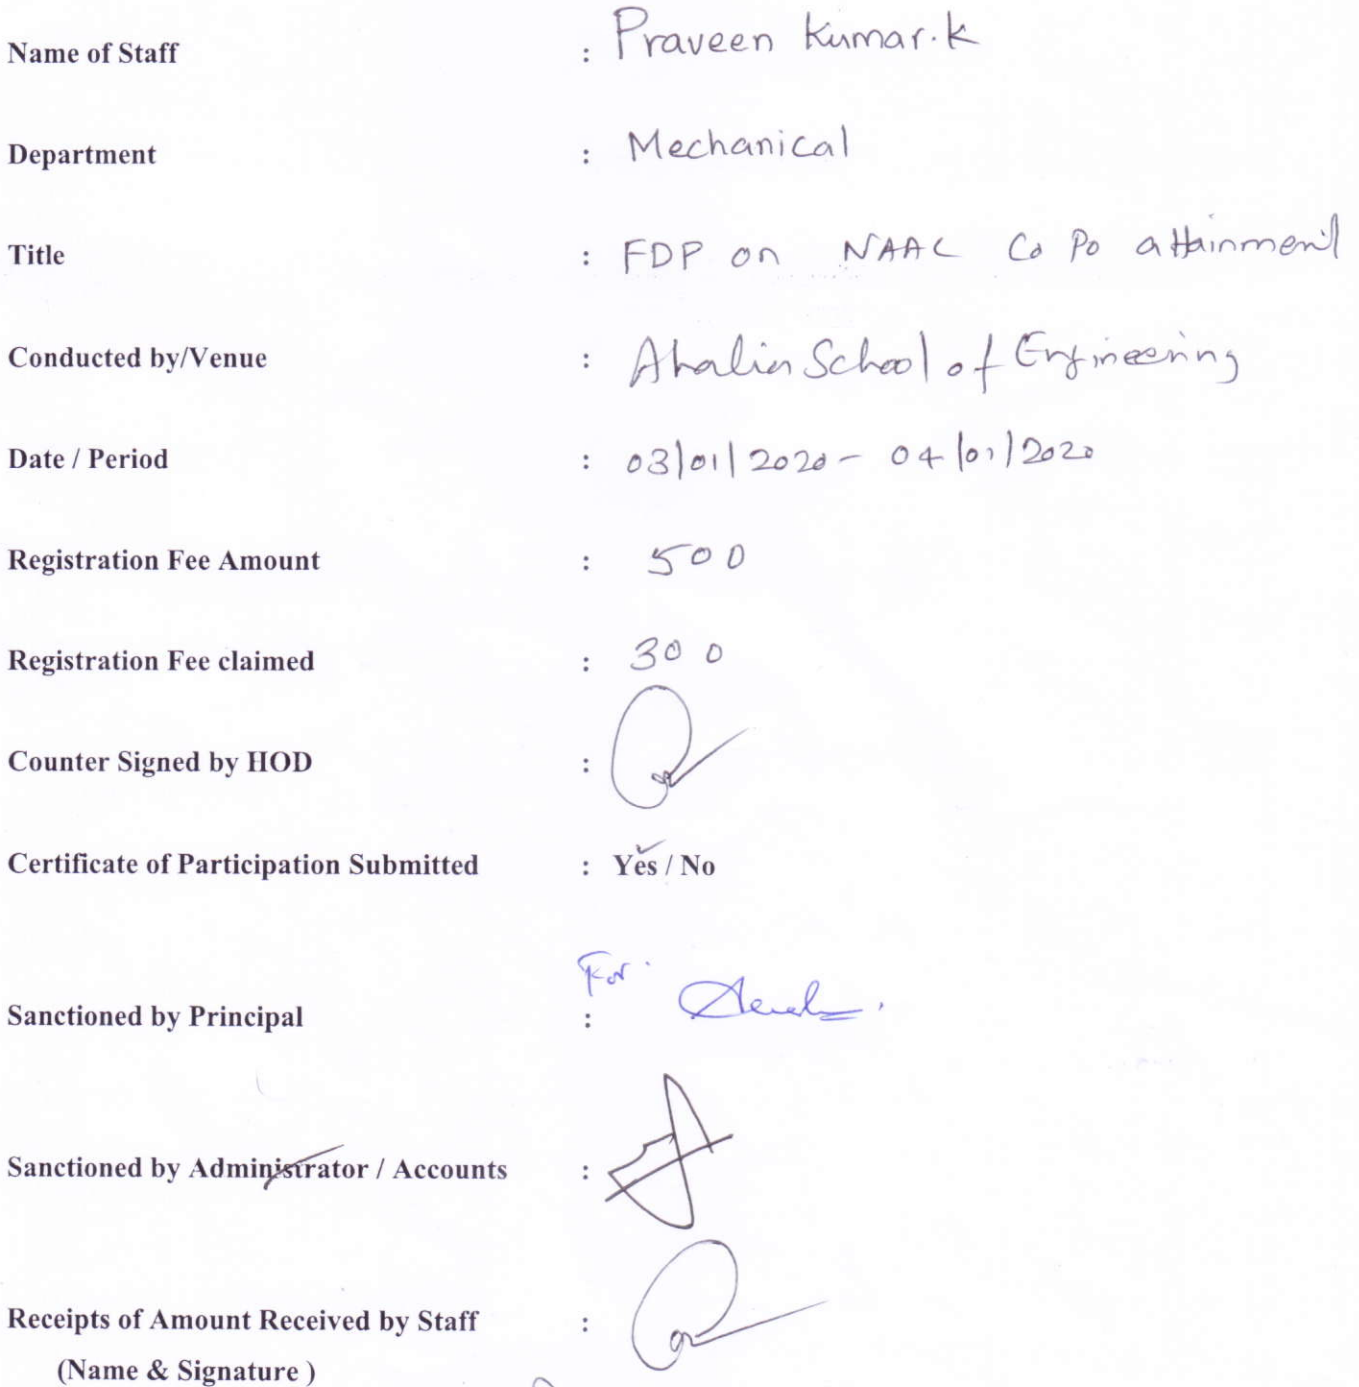 Name of Staff : Praveen Kumar.K
Department : Mechanical
Title : FDP on NAAC Co Po attainment
Conducted by/Venue : Ahalia School of Engineering
Date / Period : 03/01/2020 - 04/01/2020
Registration Fee Amount : 500
Registration Fee claimed : 300
Counter Signed by HOD :
Certificate of Participation Submitted : Yes / No
For.
Sanctioned by Principal :
Sanctioned by Administrator / Accounts :
Receipts of Amount Received by Staff :
(Name & Signature )